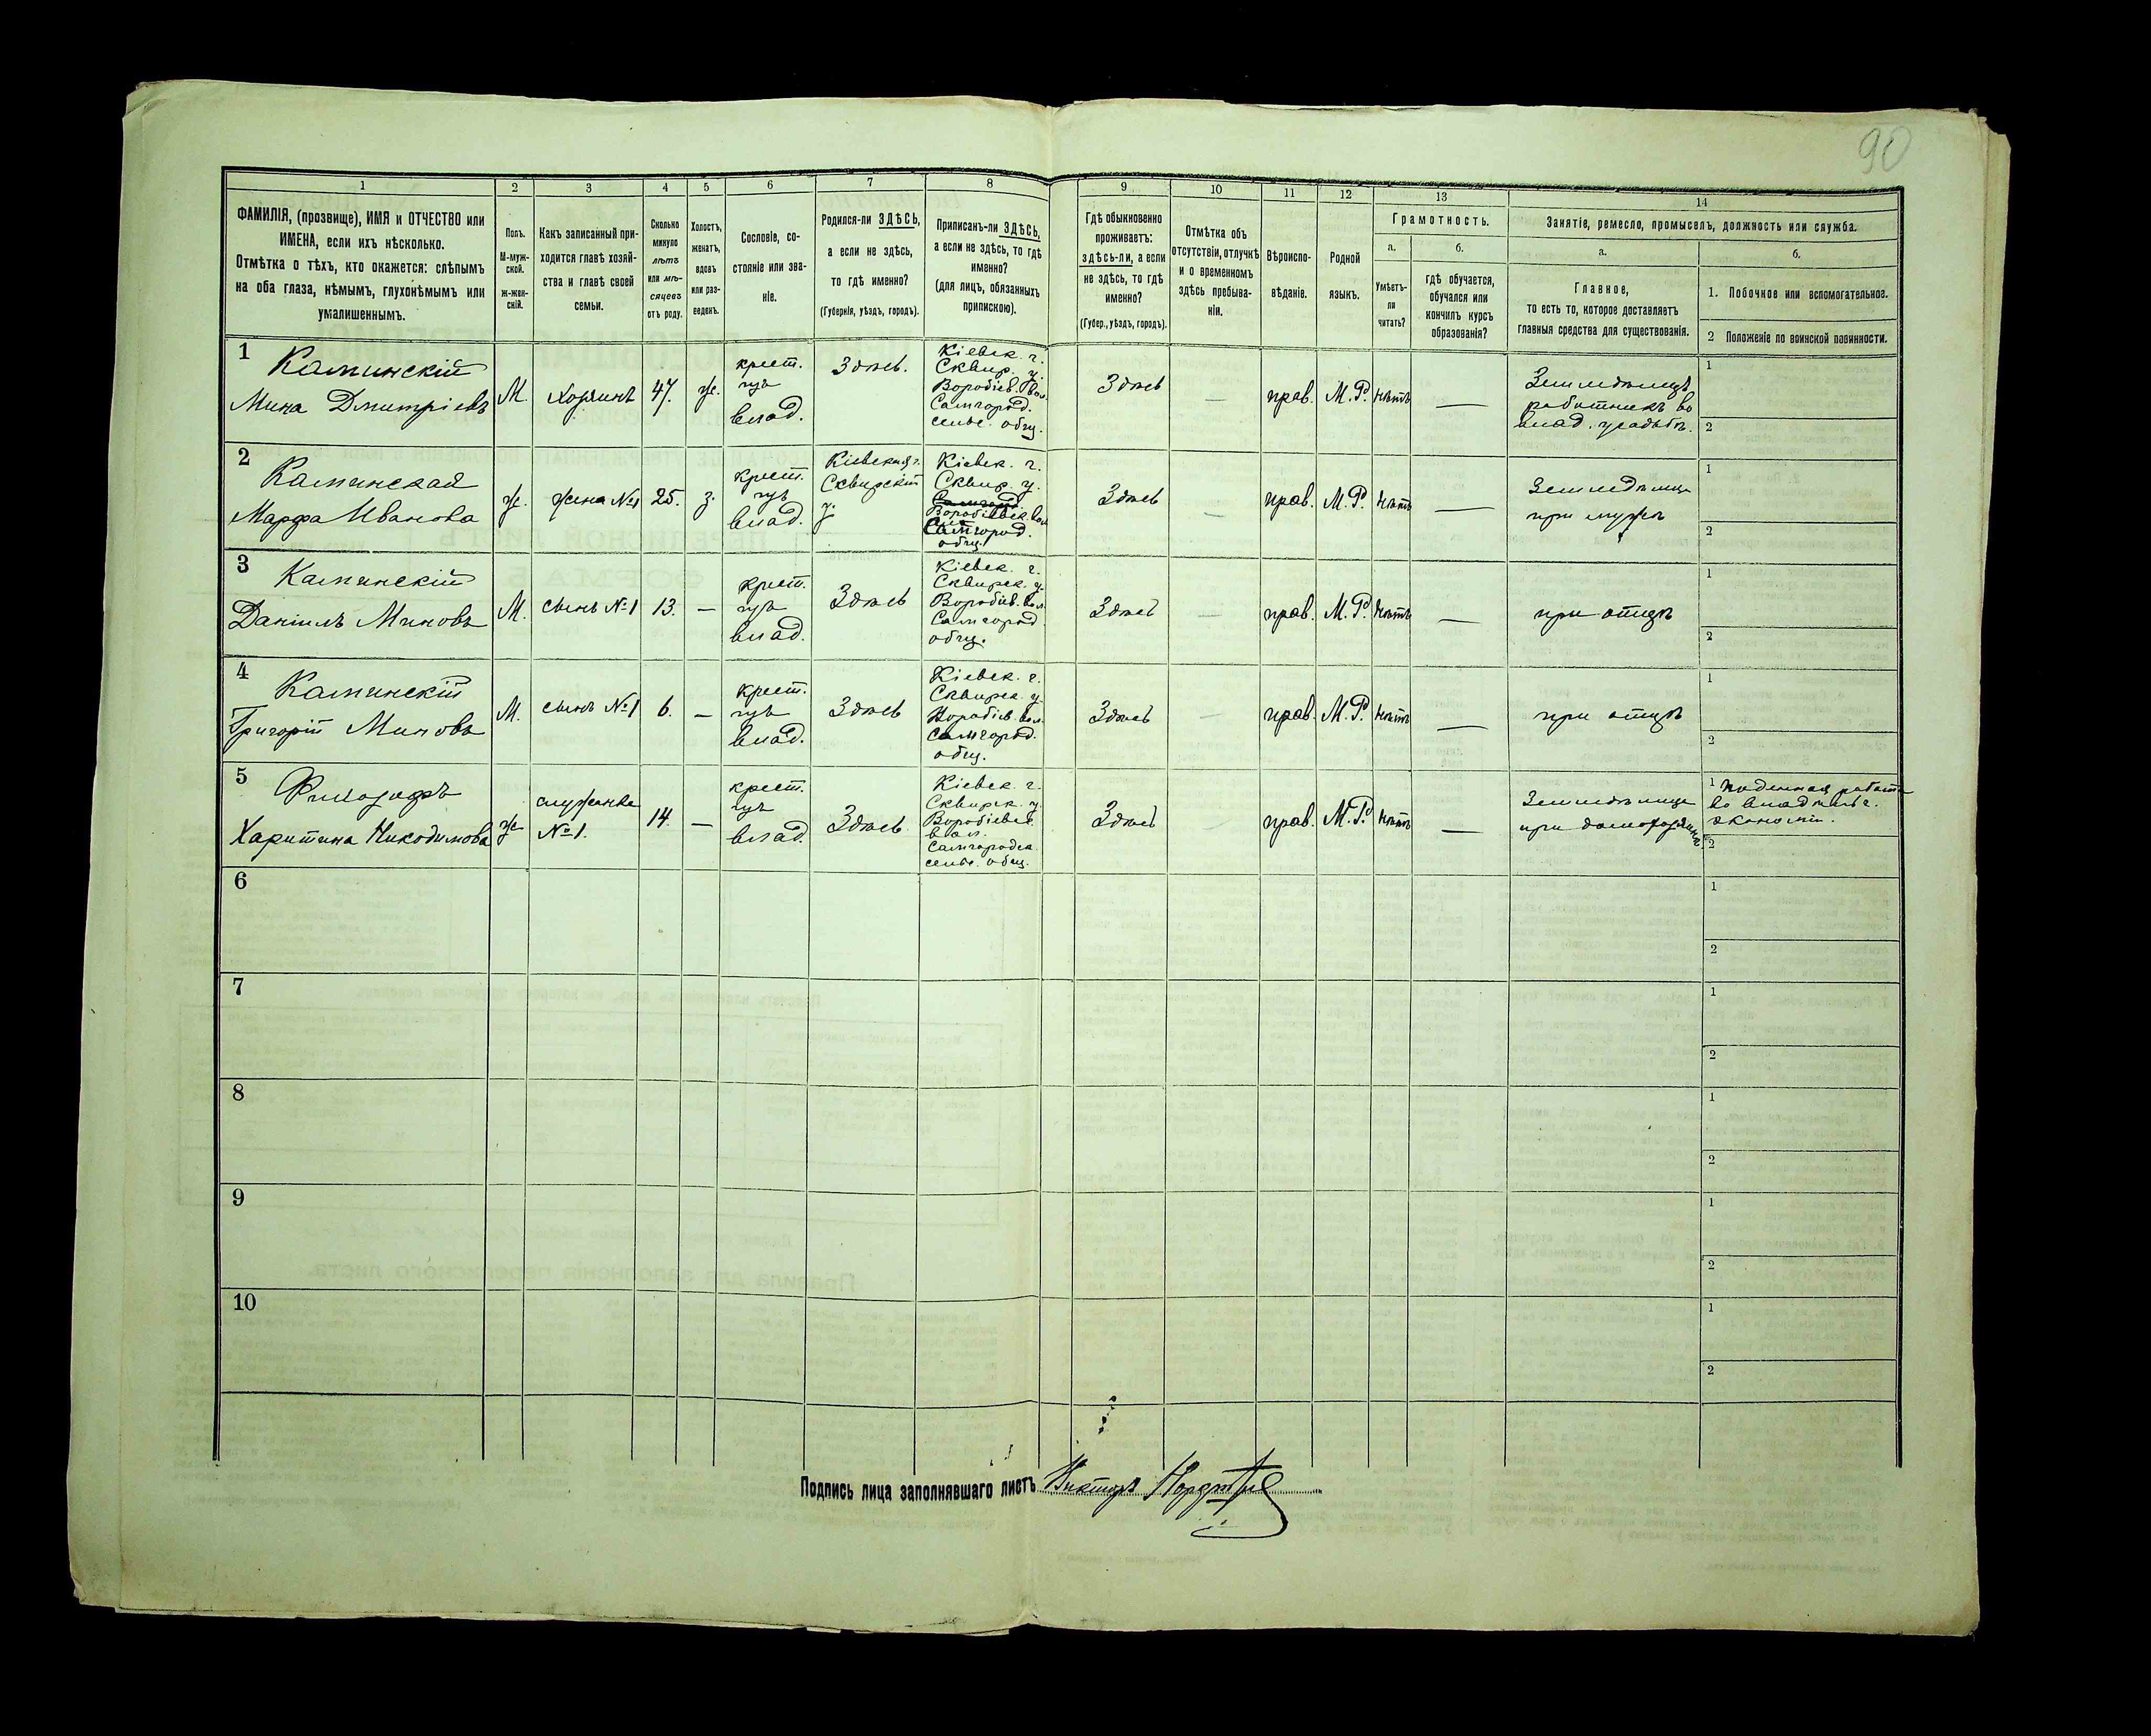 90
1 2 3 4 5 6 7 8 9 10 11 12 13 14
ФАМИЛІЯ, (прозвище), ИМЯ и ОТЧЕСТВО или
ИМЕНА, если ихъ нѣсколько.
Отмѣтка о тѣхъ, кто окажется: слѣпымъ
на оба глаза, нѣмымъ, глухонѣмымъ или
умалишеннымъ.
Полъ.
М-муж-
ской.
ж-жен-
скій.
Какъ записанный при-
ходится главѣ хозяй-
ства и главѣ своей
семьи.
Сколько
минуло
лѣтъ
или мѣ-
сяцевъ
отъ роду.
Холостъ,
женатъ,
вдовъ
или раз-
веденъ.
Сословіе, со-
стояніе или зва-
ніе.
Родился-ли ЗДѢСЬ,
а если не здѣсь,
то гдѣ именно?
(Губернія, уѣздъ, городъ).
Приписанъ-ли ЗДѢСЬ,
а если не здѣсь, то гдѣ
именно?
(для лицъ, обязанныхъ
припискою).
Гдѣ обыкновенно
проживаетъ:
здѣсь-ли, а если
не здѣсь, то гдѣ
именно?
(Губер., уѣздъ, городъ).
Отмѣтка объ
отсутствіи, отлучкѣ
и о временномъ
здѣсь пребыва-
ніи.
Вѣроиспо-
вѣданіе.
Родной
языкъ.
Грамотность.
а.
Умѣетъ-
ли
читать?
б.
гдѣ обучается,
обучался или
кончилъ курсъ
образованія?
Занятіе, ремесло, промыселъ, должность или служба.
а.
Главное,
то есть то, которое доставляетъ
главныя средства для существованія.
б.
1. Побочное или вспомогательное.
2 Положеніе по воинской повинности.
1
Каминскій
Мина Дмитріевъ
М.
Хозяинъ
47.
ж.
крест.
изъ
влад.
Здѣсь.
Кіевск. г.
Сквир. у.
Воробіев. вол.
Самгород.
сельс. общ.
Здѣсь
—
прав.
М. Р.
нѣтъ
—
Земледѣлецъ,
работникъ во
влад. усадьбѣ.
1
2
2
Каминская
Марфа Иванова
ж.
жена №1
25.
з.
крест.
изъ
влад.
Кіевская г.
Сквирскій
у.
Кіевск. г.
Сквир. у.
Воробіевск. вол.
Самгород.
общ.
Здѣсь
—
прав.
М. Р.
нѣтъ
—
Земледѣлица
при мужѣ
1
2
3
Каминскій
Даніилъ Миновъ
М.
сынъ №1
13.
—
крест.
изъ
влад.
Здѣсь
Кіевск. г.
Сквирск. у.
Воробіев. вол.
Самгород
общ.
Здѣсь
—
прав.
М. Р.
нѣтъ
—
при отцѣ
1
2
4
Каминскій
Григорій Миновъ
М.
сынъ №1
6.
—
крест.
изъ
влад.
Здѣсь
Кіевск. г.
Сквирск. у
Воробіев. вол.
Самгород.
общ.
Здѣсь
—
прав.
М. Р.
нѣтъ
—
при отцѣ
1
2
5
Философъ
Харитина Никодимова
ж
служанка
№1.
14.
—
крест.
изъ
влад.
Здѣсь
Кіевск. г.
Сквирск. у.
Воробіевск.
вол.
Самгородск.
сельс. общ.
Здѣсь
прав.
М. Р.
нѣтъ
—
Земледѣлица
при домохозяинѣ
1 поденная работа
во владѣльч.
экономіи.
2
6
1
2
7
1
2
8
1
2
9
1
2
10
1
2
Подпись лица заполнявшаго листъ Викторъ